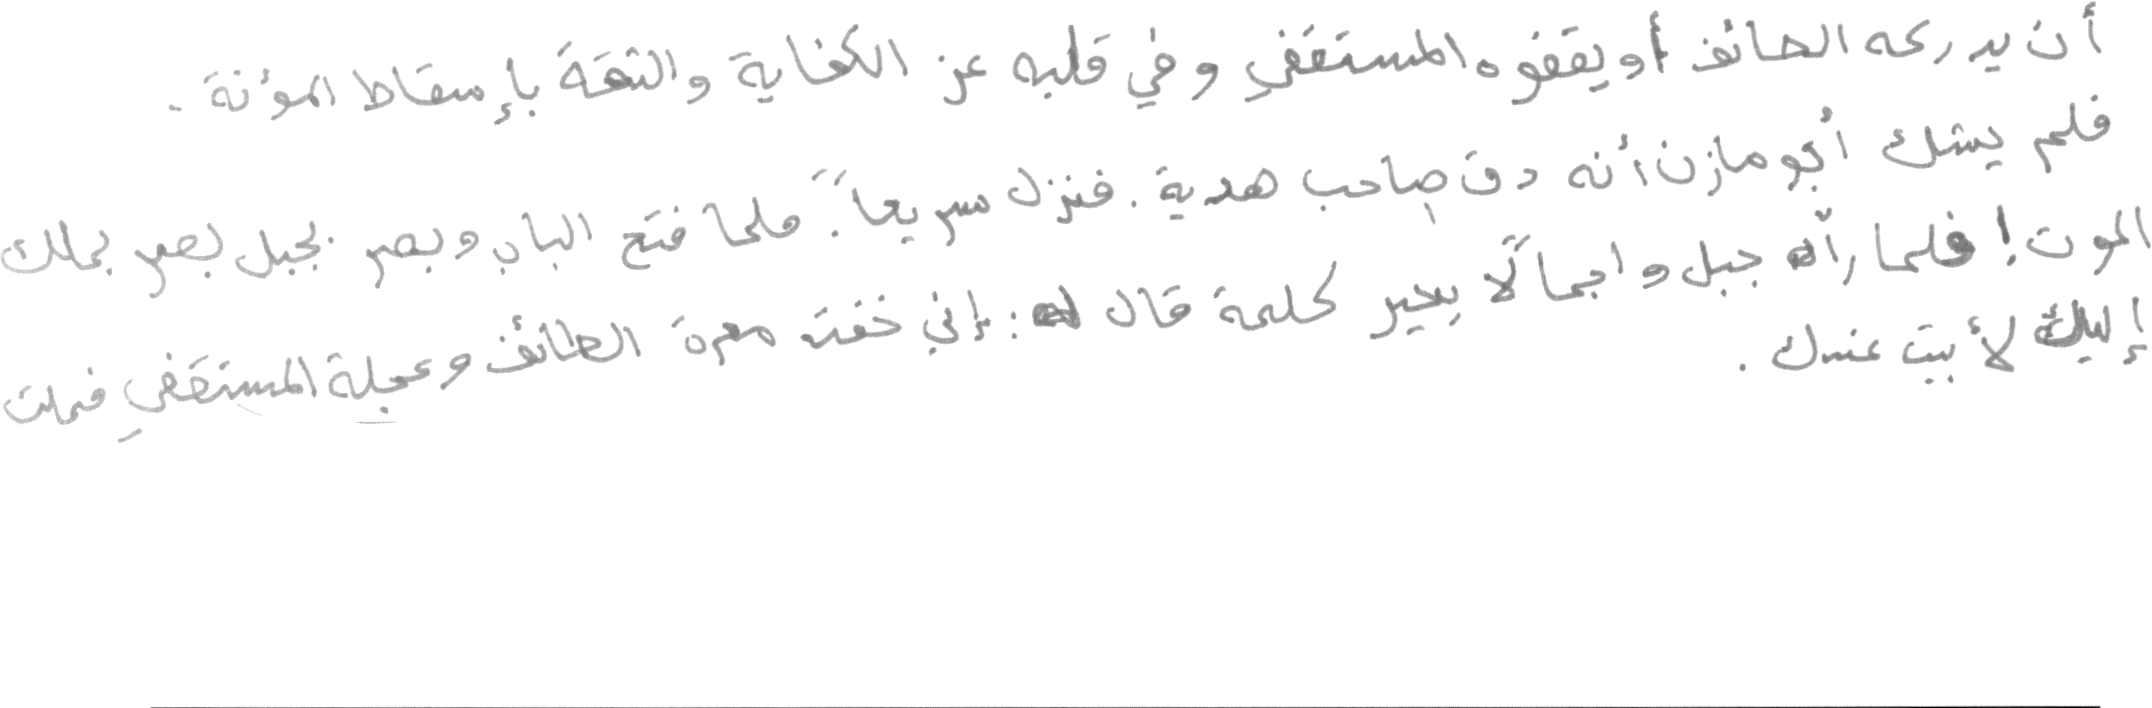 أن يدركه الطائف أو يقفوه المستقفي وفي قلبه عن الكفاية والثقة بإسقاط المؤنة.
فلم يشك أبو مازن أنه دق صاحب هدية. فنزل سريعاً. فلما فتح الباب وبصر بجبل بصر بملك
الموت! فلما رآه جبل واجمالًا يحير كلمة قال له: إني خفت معرة الطائف وعجلة المستقفي فملت
إليك لأبيت عندك.